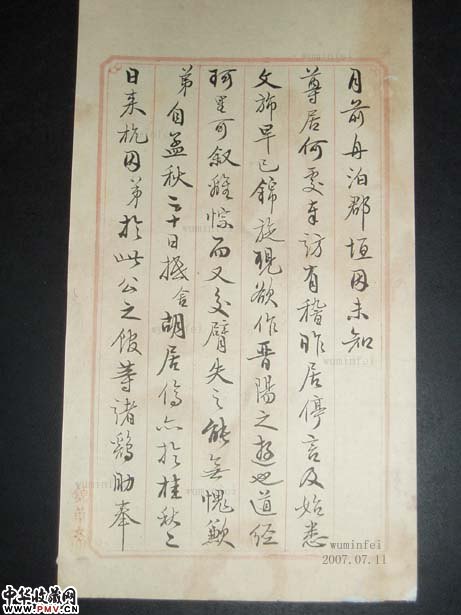 月前舟泊郡垣因未知
尊居何處奉訪有稽昨居停言及始悉
文旆早已錦旋現欲作晋陽之遊也道经
珂里可叙離悰而又交臂失之能無愧歉
弟自孟秋二十日抵舍胡居停亦於桂秋二
日来杭因弟於此公之館等諸鷄肋奉
wuminfei
2007.07.11
中华收藏网
WWW.PMV.CN